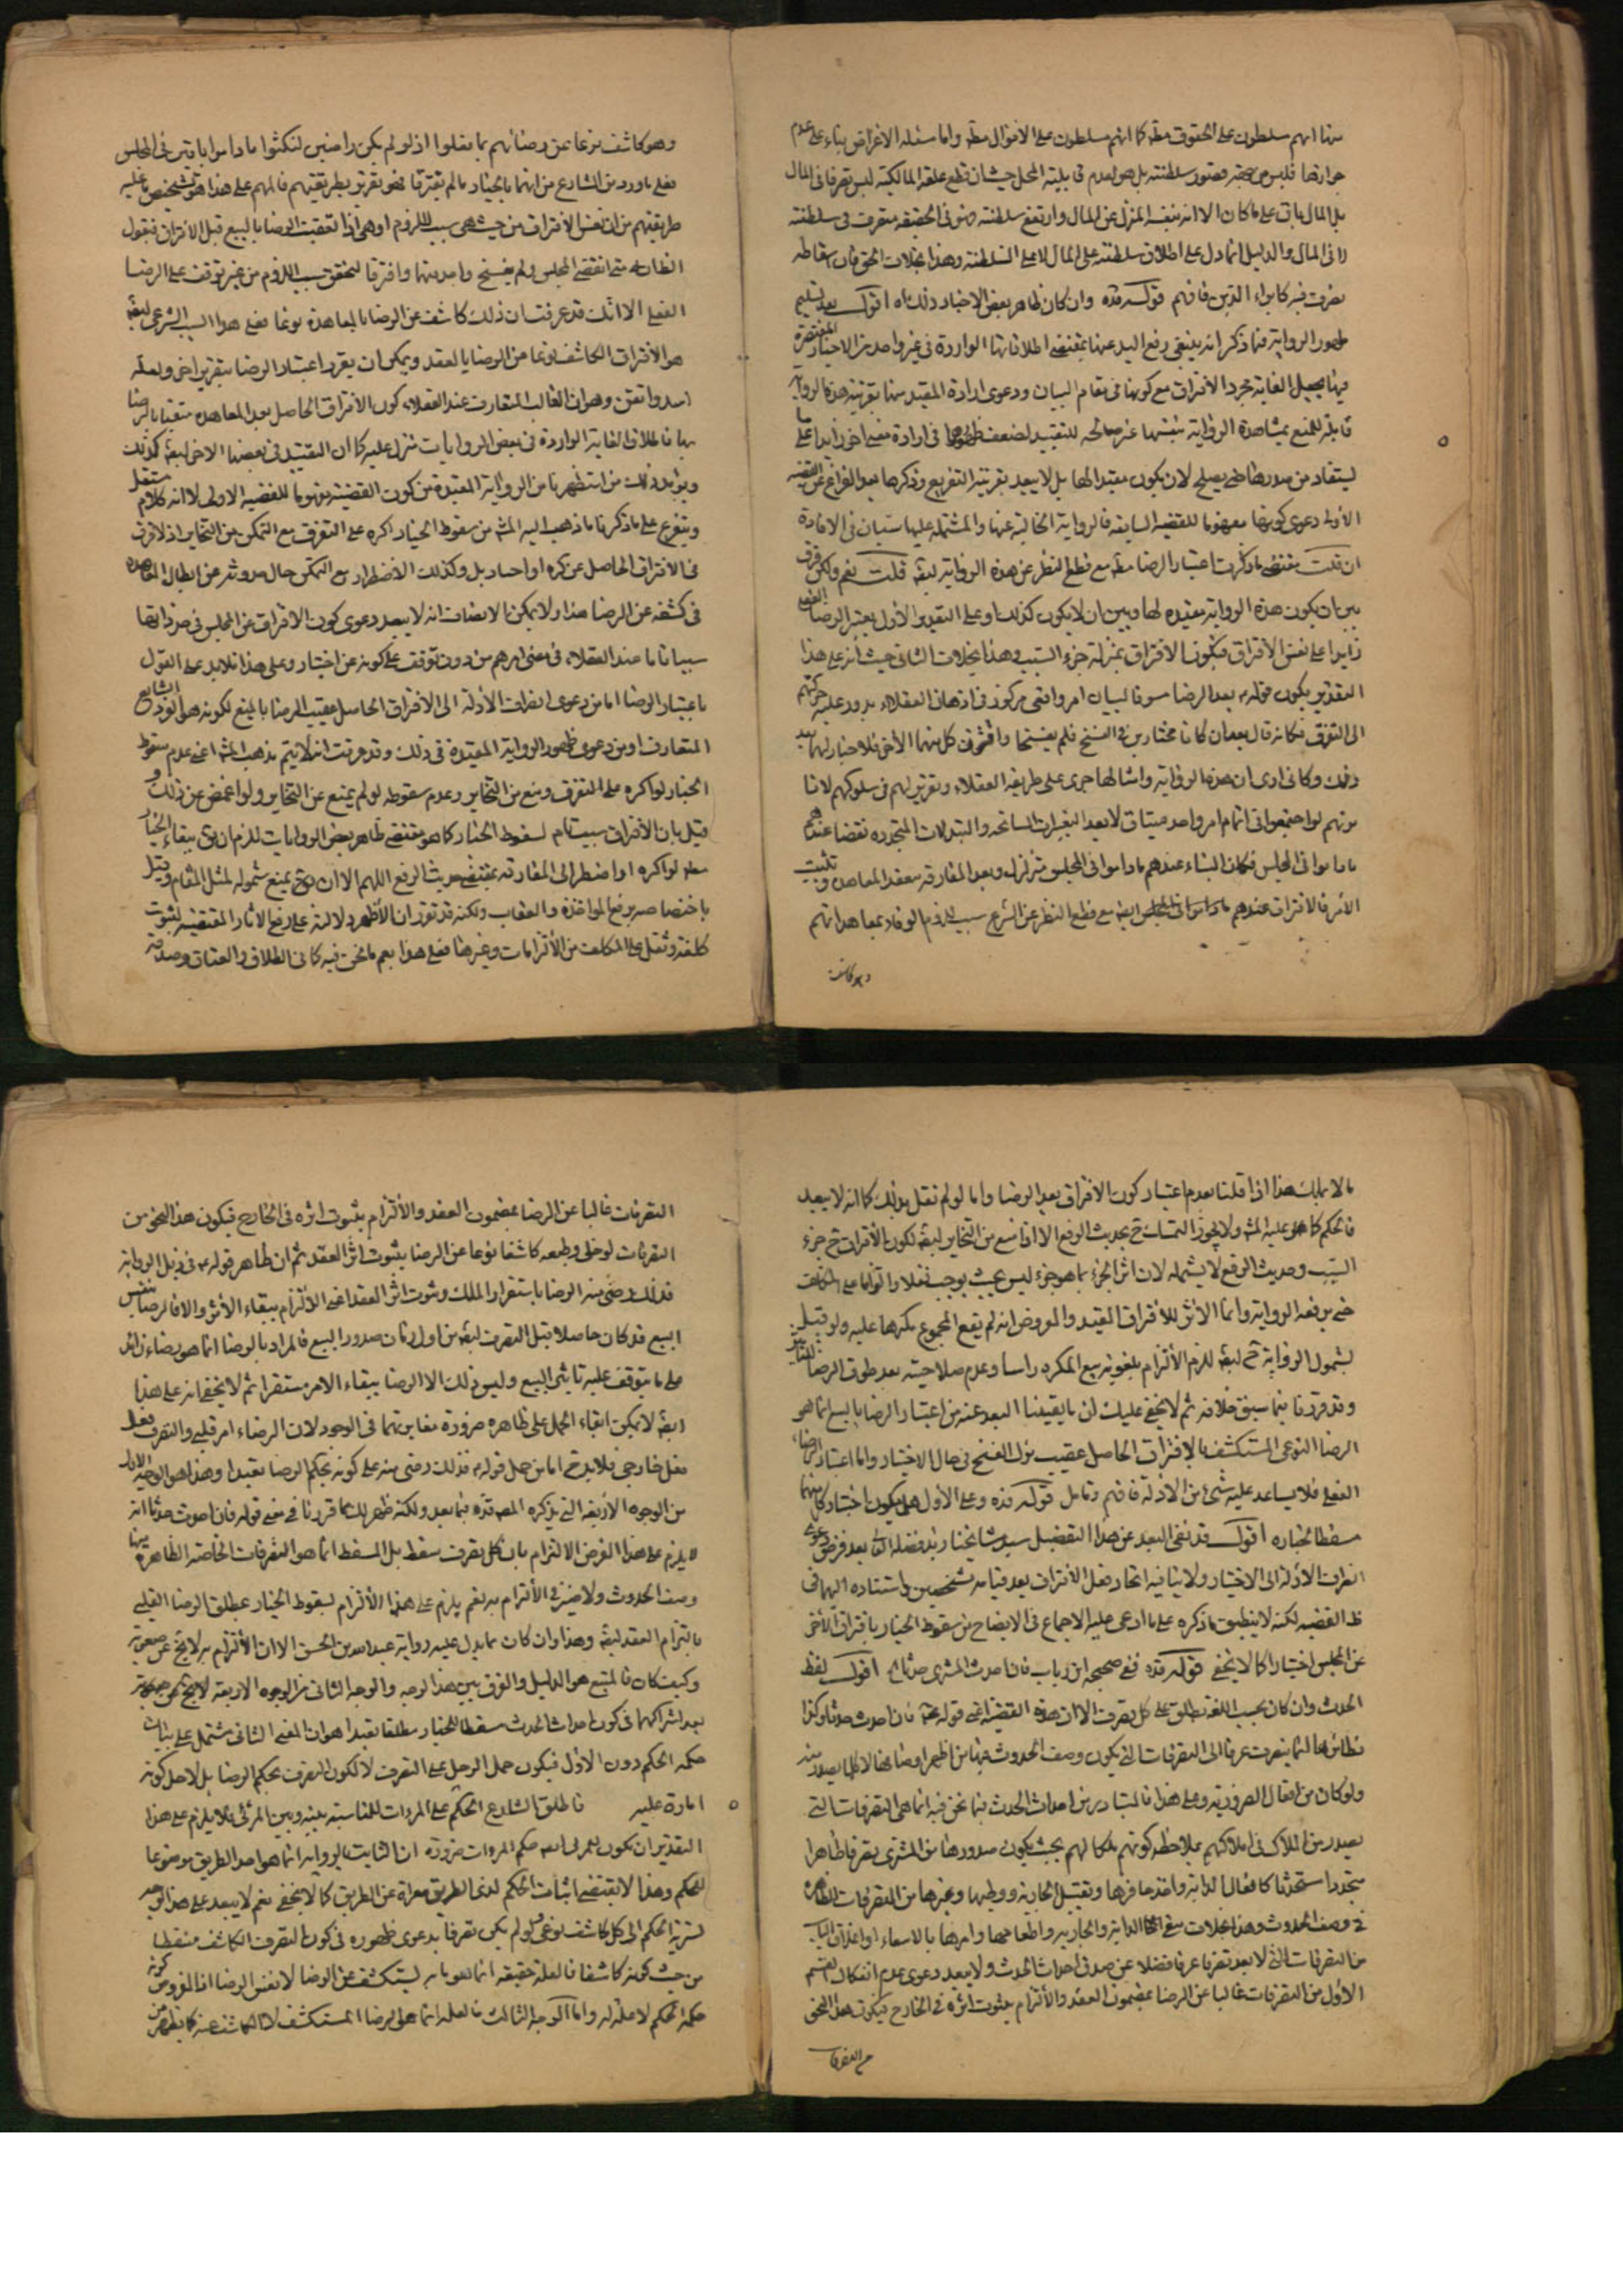 منها انهم مسلطون على الحقوق مطه كما انهم مسلطون على الاموال مطه واما مسئلة الاعراض بناء على عدم
جوازها فليس من جهة قصور سلطنته بل هو لعدم قابلية المحل حيث ان قطع علقة المالكية ليس تصرفا فى المال
بل المال باق على ما كان الا انه بنفسه المنزل عن المال وارتفع سلطنته فهو فى الحقيقة متصرف فى سلطنته
لا فى المال والدليل انما دل على اطلاق سلطنته على المال لا على السلطنة وهذا بخلاف الحق فان اسقاطه
تصرف فيه كابراء الدين فافهم قوله قده وان كان ظاهر بعض الاخبار ذلك اه اقول بعد تسليم
ظهور الرواية فيما ذكر انه ينبغى رفع اليد عنها بمقتضى اطلاقاتها الواردة فى غير واحد من الاخبار المقتصرة
فيها بجعل الغاية مجرد الافتراق مع كونها فى مقام البيان ودعوى ارادة المقيد منها بقرينة هذه الرواية
قابلة للمنع بمشاهدة الرواية بنفسها غير صالحة للتقييد لضعف ظهورها فى ارادة معنى اخر زايدا على ما
يستفاد من صدرها حتى يصلح لان يكون مقيدا لها بل لا يبعد بقرينة التفريع وذكرها بعد الفراغ عن القضية
الاولى دعوى كونها مفهوما للقضية السابقة فالرواية الخالية عنها والمشتملة عليها سيان فى الافادة
ان قلت مقتضى ما ذكرت اعتبار الرضا مطه مع قطع النظر عن هذه الرواية ايضا قلت نعم ولكن فرق
بين ان يكون هذه الرواية مقيدة لها وبين ان لا يكون كذلك وعلى التقدير الاول يعتبر الرضا الفعلى
زايدا على نفس الافتراق فيكون الافتراق بمنزلة جزء السبب وهذا بخلاف الثانى حيث انه على هذا
التقدير يكون قوله بعد الرضا مسوقا لبيان امر واقعى مركوز فى اذهان العقلاء يدور عليه حركتهم
الى التفرق فكانه قال بعد ان كانا مختارين فى الفسخ فلم يفسخا وافترق كل منهما الاخر فلا خيار لهما بعد
ذلك وكانى ارى ان هذه الرواية وامثالها جرى على طريقة العقلاء وتقرير لهم فى سلوكهم لانا
نريهم لو اجتمعوا فى اتمام امر واحد ميثاق لا يعد التغييرات السانحة والتبدلات المتجدده نقضا عندهم
ما داموا فى المجلس فكان البناء عندهم ما داموا فى المجلس متزلزل وبعد المفارقة ينعقد المعاهدة وتثبت
الامر فالافتراق عندهم ايضا مع قطع النظر عن الشرع سبب للزوم الوفاء بمعاهداتهم
وهو كاشف
وهو كاشف نوعا عن رضائهم بما فعلوا اذ لو لم يكن راضين لنكثوا ما داموا باقين فى المجلس
فعلى ما ورد من الشارع من انهما بالخيار ما لم يفترقا فهو تقرير بطريقتهم فالمهم على هذا هو تشخيص ما عليه
طريقتهم من ان نفس الافتراق من حيث هى سبب اللزوم او هى اذا تعقبت الرضا بالبيع قبل الافتراق فنقول
الظاهر انه متى انقضى المجلس ولم يفسخ واحد منهما وافترقا لتحقق سبب اللزوم من غير توقف على الرضا
الفعلى الا انك قد عرفت ان ذلك كاشف عن الرضا بالمعاهدة نوعا فعلى هذا السبب الشرعى ايضا
هو الافتراق الكاشف نوعا من الرضا بالعقد ويمكن ان يقرر اعتبار الرضا بتقرير اخر ولعله
اسد واتقن وهو ان الغالب المتعارف عند العقلاء كون الافتراق الحاصل بعد المعاهدة متعقبا بالرضا
بها فاطلاق الغاية الواردة فى بعض الروايات منزل عليه كما ان التقييد فى بعضها الاخر ايضا كذلك
ويؤيد ذلك ما استظهرنا من الرواية المقيدة من كون القضية مفهوما للقضية الاولى لا انه كلام مستقل
ويتفرع على ما ذكرنا ما ذهب اليه المشه من سقوط الخيار اكره على التفرق مع التمكن من التخاير اذ لا فرق
فى الافتراق الحاصل عن كره او اختيار بل وكذلك الاضطرار مع التمكن حال حدوثه عن ابطال المعاهدة
فى كشفه عن الرضا هذا ولا يمكن الانصاف انه لا يبعد دعوى كون الافتراق عن المجلس فى حد ذاتها
سببا تاما عند العقلاء فى مضى امرهم من دون توقف على كونه عن اختيار وعلى هذا فلا بد على القول
باعتبار الرضا اما من دعوى انصراف الادلة الى الافتراق الحاصل عقيب الرضا بالبيع لكونه هو الفرد الشايع
المتعارف او من دعوى ظهور الرواية المقيدة فى ذلك وقد عرفت انه لا يتم مذهب المشه اعنى عدم سقوط
الخيار لو اكره على التفرق ومنع من التخاير وعدم سقوطه لو لم يمنع عن التخاير ولو اغمض عن ذلك و
قيل بان الافتراق سبب تام لسقوط الخيار كما هو مقتضى ظاهر بعض الروايات للزم ان نقول ببقاء الخيار
مطه لو اكره او اضطر الى المفارقة بمقتضى حديث الرفع اللهم الا ان يمنع شموله لمثل المقام وقيل
باختصاصه برفع المواخذة والعقاب ولكنه قد تقرر ان الاظهر دلالته على رفع الاثار المقتضية لثبوت
كلفة وثقل على المكلف من الالزامات وغيرها فعلى هذا يعم ما نحن فيه كما فى الطلاق والعتاق وصدقة
ما لا يملك هذا اذا قلنا بعدم اعتبار كون الافتراق بعد الرضا واما لو لم نقل بذلك كما انه لا يبعد
فالحكم كما هو عليه المشه ولا يجوز التمسك ح بحديث الرفع الا اذا منع من التخاير ايضا لكون الافتراق ح جزء
السبب وحديث الرفع لا يشمله لان اثر الجزء بما هو جزء ليس بحيث يوجب ثقلا والزاما على المكلف
حتى يرفعه الرواية وانما الاثر للافتراق المقيد والمفروض انه لم يقع المجموع مكرها عليه ولو قيل
بشمول الرواية ح ايضا للزم الالتزام بلغوية بيع المكره راسا وعدم صلاحيته بعد لحوق الرضا للتاثير
وقد قررنا فيما سبق خلافه ثم لا يخفى عليك ان ما يقيدنا البعد عنه من اعتبار الرضا بالبيع انما هو
الرضا النوعى المستكشف بالافتراق الحاصل عقيب ترك الفسخ فى حال الاختيار واما اعتبار الرضا
الفعلى فلا يساعد عليه شئ من الادلة فافهم وتامل قوله قده وعلى الاول هل يكون اختيار كل منهما
مسقطا لخياره اقول قد نفى البعد عن هذا التفصيل سيد مشايخنا بعد فرض دعوى
انصراف الادلة الى الاختيار ولا ينافيه اتحاد فعل الافتراق بعد قيامه بشخصين واستناده اليهما فى
ظ القضية لكنه لا ينطبق ما ذكره على ما ادعى عليه الاجماع فى الايضاح من سقوط الخيار بافتراق الاخر
عن المجلس اختيارا كما لا يخفى قوله قده ففى صحيحة ابن رياب فان احدث المشترى حدثا اه اقول لفظ
الحدث وان كان بحسب اللغة يطلق على كل تصرف الا ان هذه القضية اعنى قوله فان احدث حدثا وكذا
نظائرها انما ينصرف عرفا الى التصرفات التى يكون وصف الحدوث فيها من اظهر اوصافها لا كلما يصدر منه
ولو كان من افعال الضرورية وعلى هذا فالمتبادر من احداث الحدث فيما نحن فيه انما هى التصرفات التى
يصدر من الملاك فى املاكهم بملاحظة كونهم ملاكا لهم بحيث يكون صدورها من المشترى تصرفا ظاهرا
متجددا مستحدثا كافعال الدابة واخذ حافرها وتقبيل الجارية ووطيها وغيرها من التصرفات الظاهرة
فى وصف الحدوث وهذا بخلاف سقى الدابة والجارية واطعامها وامرها بالاسقاء او اغلاق الباب
من التصرفات التى لا يعد تصرفا عرفا فضلا عن صدق احداث الحدث ولا يبعد دعوى عدم انفكاك القسم
الاول من التصرفات غالبا عن الرضا بمضمون العقد والالتزام بثبوت اثره فى الخارج فيكون هذا النحو
من التصرفات
التصرفات غالبا عن الرضا بمضمون العقد والالتزام بثبوت اثره فى الخارج فيكون هذا النحو من
التصرفات لو خلى وطبعه كاشفا نوعا عن الرضا بثبوت اثر العقد ثم ان ظاهر قوله فى ذيل الرواية
فذلك رضى منه الرضا باستقرار الملك وثبوت اثر العقد اعنى الالتزام ببقاء الاثر والا فالرضا بنفس
البيع قد كان حاصلا قبل التصرف ايضا من اول زمان صدور البيع فالمراد بالرضا انما هو رضاء زائد
على ما يتوقف عليه تاثير البيع وليس ذلك الا الرضا ببقاء الامر مستقرا ثم لا يخفى انه على هذا
ايضا لا يمكن ابقاء الحمل على ظاهره ضرورة مغايرتهما فى الوجود لان الرضاء امر قلبى والتصرف فعل
فعل خارجى فلا بد ح اما من حمل قوله فذلك رضى منه على كونه بحكم الرضا تعبدا وهذا هو الوجه الاول
من الوجوه الاربعة التى يذكره المصه قده فيما بعد ولكنه ظهر لك مما قررنا فى معنى قوله فان احدث حدثا انه
لا يلزم على هذا الفرض الالتزام بان كل تصرف مسقط بل المسقط انما هو التصرفات الخاصة الظاهرة فيها
وصف الحدوث ولا ضير فى الالتزام به نعم يلزم على هذا الالتزام بسقوط الخيار بمطلق الرضا القلبى
بالتزام العقد ايضا وهذا وان كان مما يدل عليه رواية عبد الله بن الحسن الا ان الالتزام به لا يخ عن صعوبة
وكيف كان فالمتبع هو الدليل والفرق بين هذا الوجه والوجه الثانى من الوجوه الاربعة
بعد اشتراكهما فى كون احداث الحدث مسقطا للخيار مطلقا تعبدا هو ان المعنى الثانى مشتمل على بيان
حكمة الحكم دون الاول فيكون حمل الرجل على التصرف لا لكون التصرف بحكم الرضا بل لاجل كونه
امارة عليه فاطلق الشارع الحكم على المروات للمناسبة بينه وبين المرئى فلا يلزم على هذا
التقدير ان يكون حكم المروات ضرورة ان الثابت بالرواية انما هو احد الطريق موضوعا
للحكم وهذا لا يقتضى اثبات الحكم لذى الطريق معراة عن الطريق كما لا يخفى نعم لا يبعد على هذا الوجه
تسرية الحكم الى كل كاشف نوعى ولو لم يكن تصرفا بدعوى ظهوره فى كون التصرف الكاشف مسقطا
من حيث كونه كاشفا فالعلة حقيقة انما هو ما به ليستكشف عن الرضا لا نفس الرضا اذ المفروض كونه
حكمة الحكم لا علة له واما الوجه الثالث فالعلة انما هو الرضا المستكشف لا الكاشف عنه كما يظهر من